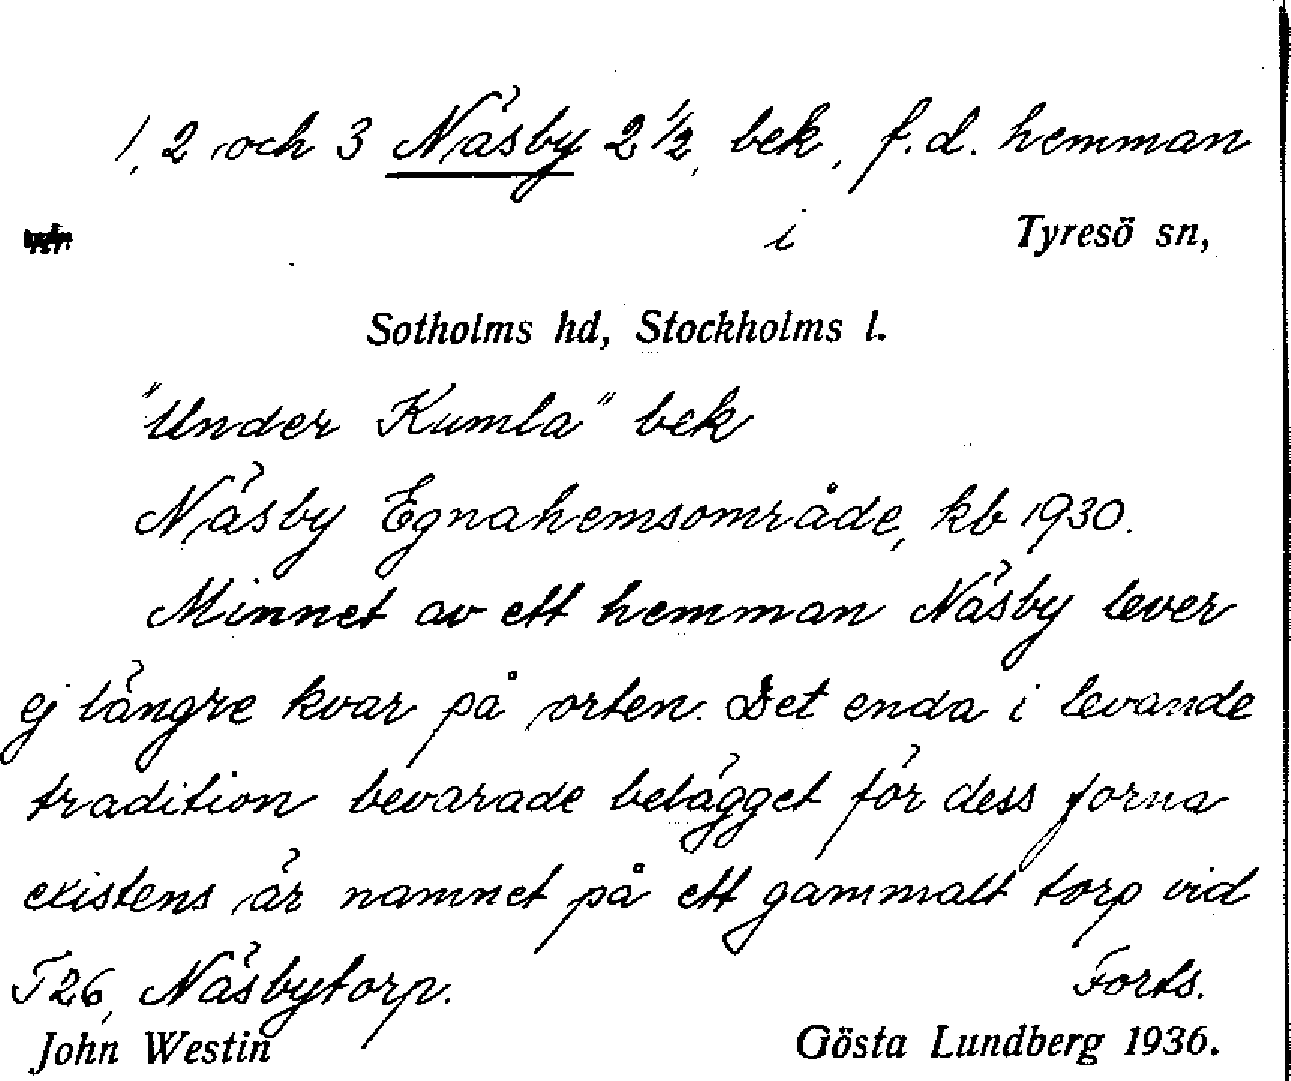 1, 2 och 3 Näsby 2 1/2, bek, f.d. hemman
i Tyresö sn,
Sotholms hd, Stockholms l.
"Under Kumla" bek
Näsby Egnahemsområde, kb 1930.
Minnet av ett hemman Näsby lever
ej längre kvar på orten. Det enda i levande
tradition bevarade belägget för dess forna
existens är namnet på ett gammalt torp vid
T26, Näsbytorp. Forts.
John Westin Gösta Lundberg 1936.